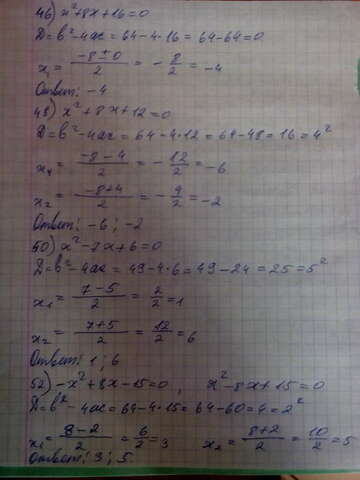 46) x²+8x+16=0
D=b²-4ac=64-4·16=64-64=0
x₁= (-8±0)/2 = -8/2 = -4
Ответ: -4
48) x²+8x+12=0
D=b²-4ac=64-4·12=64-48=16=4²
x₁= (-8-4)/2 = -12/2 = -6
x₂= (-8+4)/2 = -4/2 = -2
Ответ: -6; -2
50) x²-7x+6=0
D=b²-4ac=49-4·6=49-24=25=5²
x₁= (7-5)/2 = 2/2 = 1
x₂= (7+5)/2 = 12/2 = 6
Ответ: 1; 6
52) -x²+8x-15=0, x²-8x+15=0
D=b²-4ac=64-4·15=64-60=4=2²
x₁= (8-2)/2 = 6/2 = 3 x₂= (8+2)/2 = 10/2 = 5
Ответ: 3; 5.